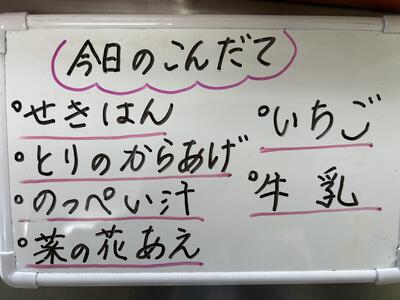 今日のこんだて
°せきはん
°とりのからあげ
°のっぺい汁
°菜の花あえ
°いちご
°牛乳